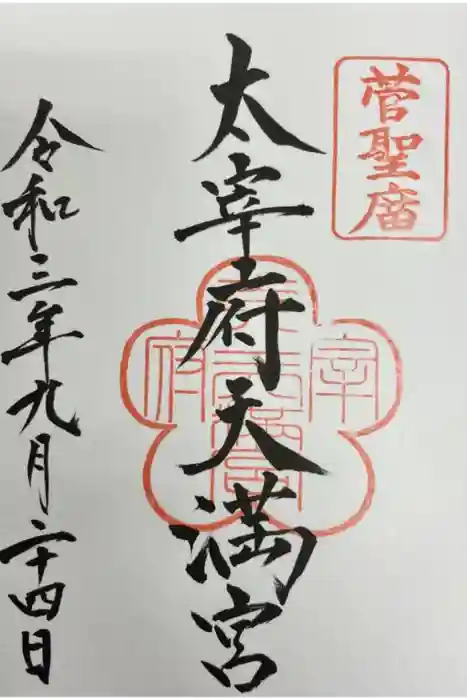 菅聖庿
太宰府天満宮
令和三年九月二十四日